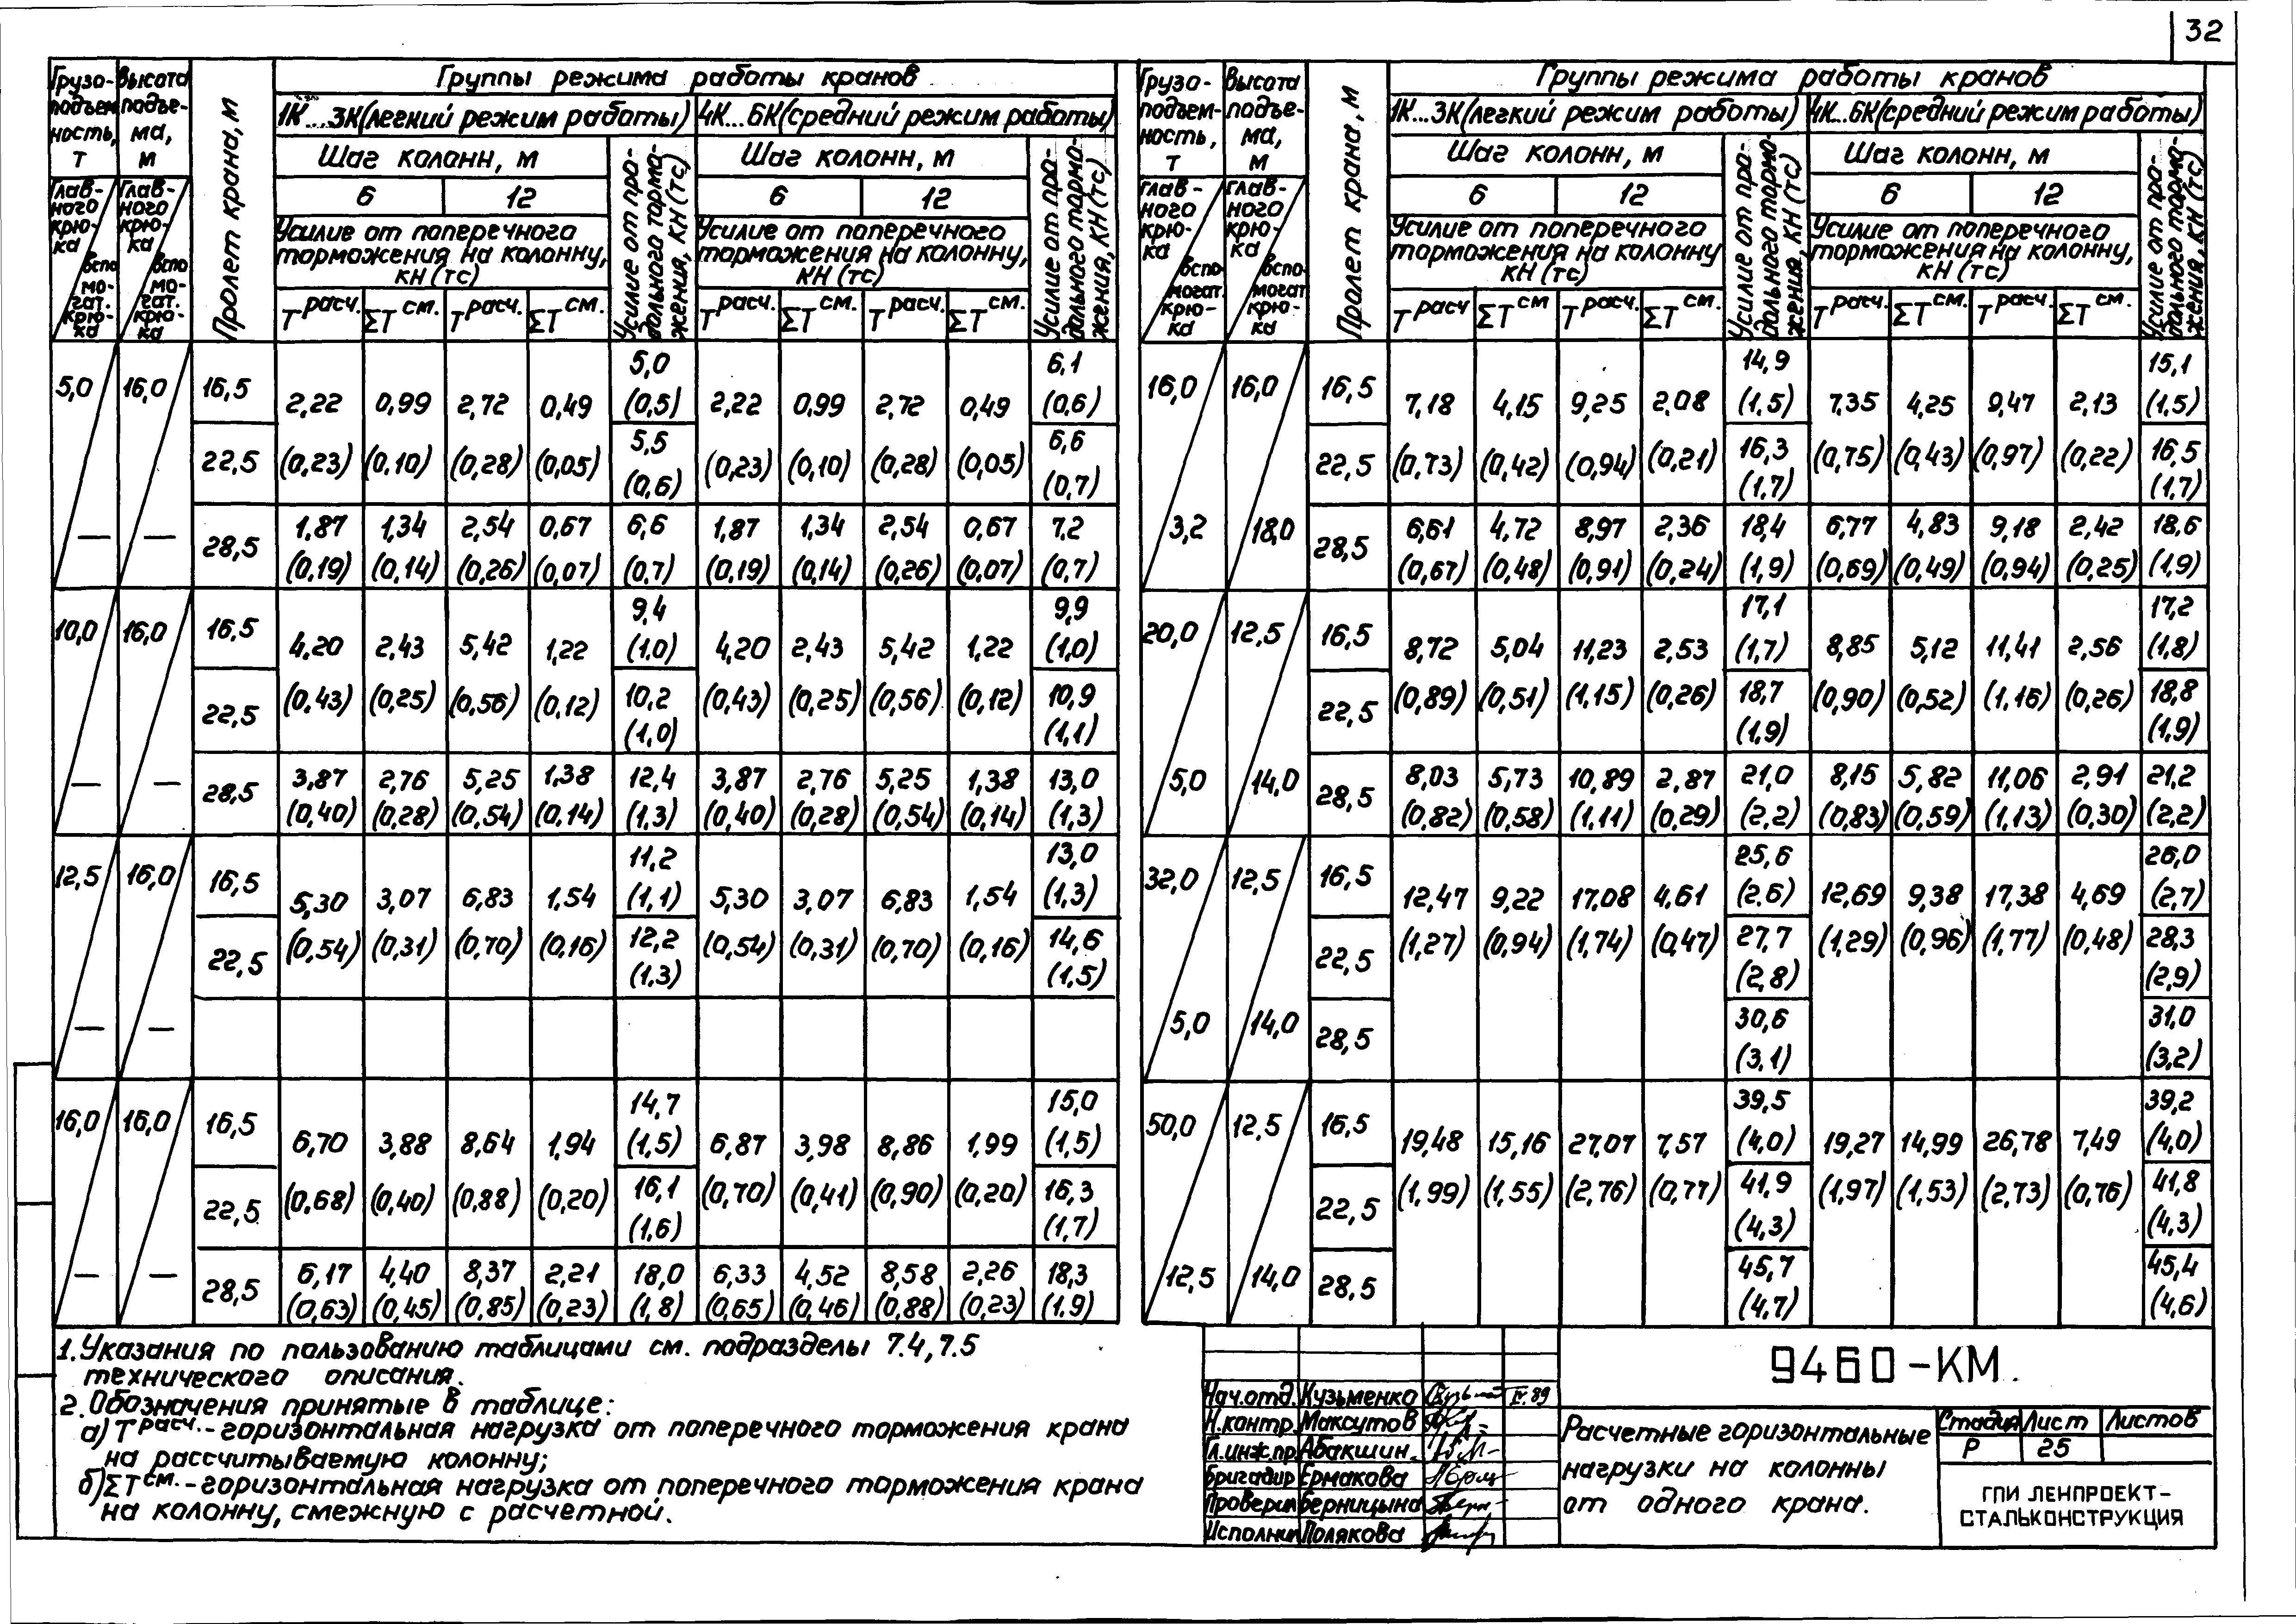 32
Грузо-подъем-ность, т
Высота подъе-ма, м
Пролет крана, м
Группы режима работы кранов
1К...3К(легкий режим работы) 4К...6К(средний режим работы)
Шаг колонн, м
Усилие от про-дольного тормо-жения, кН (тс)
Шаг колонн, м
Усилие от про-дольного тормо-жения, кН (тс)
Глав-ного крю-ка / вспо-могат. крю-ка
Глав-ного крю-ка / вспо-могат. крю-ка
6 12 6 12
Усилие от поперечного торможения на колонну, кН (тс)
Усилие от поперечного торможения на колонну, кН (тс)
Tрасч. ΣTсм. Tрасч. ΣTсм. Tрасч. ΣTсм. Tрасч. ΣTсм.
5,0 6,1
5,0 16,0 16,5 2,22 0,99 2,72 0,49 (0,5) 2,22 0,99 2,72 0,49 (0,6)
5,5 6,6
22,5 (0,23) (0,10) (0,28) (0,05) (0,6) (0,23) (0,10) (0,28) (0,05) (0,7)
— — 28,5 1,87 1,34 2,54 0,67 6,6 1,87 1,34 2,54 0,67 7,2
(0,19) (0,14) (0,26) (0,07) (0,7) (0,19) (0,14) (0,26) (0,07) (0,7)
9,4 9,9
10,0 16,0 16,5 4,20 2,43 5,42 1,22 (1,0) 4,20 2,43 5,42 1,22 (1,0)
22,5 (0,43) (0,25) (0,56) (0,12) 10,2 (0,43) (0,25) (0,56) (0,12) 10,9
(1,0) (1,1)
— — 28,5 3,87 2,76 5,25 1,38 12,4 3,87 2,76 5,25 1,38 13,0
(0,40) (0,28) (0,54) (0,14) (1,3) (0,40) (0,28) (0,54) (0,14) (1,3)
11,2 13,0
12,5 16,0 16,5 5,30 3,07 6,83 1,54 (1,1) 5,30 3,07 6,83 1,54 (1,3)
22,5 (0,54) (0,31) (0,70) (0,16) 12,2 (0,54) (0,31) (0,70) (0,16) 14,6
(1,3) (1,5)
— —
14,7 15,0
16,0 16,0 16,5 6,70 3,88 8,64 1,94 (1,5) 6,87 3,98 8,86 1,99 (1,5)
22,5 (0,68) (0,40) (0,88) (0,20) 16,1 (0,70) (0,41) (0,90) (0,20) 16,3
(1,6) (1,7)
— — 28,5 6,17 4,40 8,37 2,21 18,0 6,33 4,52 8,58 2,26 18,3
(0,63) (0,45) (0,85) (0,23) (1,8) (0,65) (0,46) (0,88) (0,23) (1.9)
Грузо-подъем-ность, т
Высота подъе-ма, м
Пролет крана, м
Группы режима работы кранов
1К...3К(легкий режим работы) 4К...6К(средний режим работы)
Шаг колонн, м
Усилие от про-дольного тормо-жения, кН (тс)
Шаг колонн, м
Усилие от про-дольного тормо-жения, кН (тс)
глав-ного крю-ка / вспо-могат. крю-ка
глав-ного крю-ка / вспо-могат крю-ка
6 12 6 12
Усилие от поперечного торможения на колонну кН (тс)
Усилие от поперечного торможения на колонну, кН (тс)
Tрасч ΣTсм Tрасч. ΣTсм. Tрасч. ΣTсм. Tрасч. ΣTсм.
14,9 15,1
16,0 16,0 16,5 7,18 4,15 9,25 2,08 (1,5) 7,35 4,25 9,47 2,13 (1,5)
22,5 (0,73) (0,42) (0,94) (0,21) 16,3 (0,75) (0,43) (0,97) (0,22) 16,5
(1,7) (1,7)
3,2 18,0 28,5 6,61 4,72 8,97 2,36 18,4 6,77 4,83 9,18 2,42 18,6
(0,67) (0,48) (0,91) (0,24) (1,9) (0,69) (0,49) (0,94) (0,25) (1,9)
17,1 17,2
20,0 12,5 16,5 8,72 5,04 11,23 2,53 (1,7) 8,85 5,12 11,41 2,56 (1,8)
22,5 (0,89) (0,51) (1,15) (0,26) 18,7 (0,90) (0,52) (1,16) (0,26) 18,8
(1,9) (1,9)
5,0 14,0 28,5 8,03 5,73 10,89 2,87 21,0 8,15 5,82 11,06 2,91 21,2
(0,82) (0,58) (1,11) (0,29) (2,2) (0,83) (0,59) (1,13) (0,30) (2,2)
25,6 26,0
32,0 12,5 16,5 12,47 9,22 17,08 4,61 (2,6) 12,69 9,38 17,38 4,69 (2,7)
22,5 (1,27) (0,94) (1,74) (0,47) 27,7 (1,29) (0,96) (1,77) (0,48) 28,3
(2,8) (2,9)
5,0 14,0 28,5 30,6 31,0
(3,1) (3,2)
39,5 39,2
50,0 12,5 16,5 19,48 15,16 27,07 7,57 (4,0) 19,27 14,99 26,78 7,49 (4,0)
22,5 (1,99) (1,55) (2,76) (0,77) 41,9 (1,97) (1,53) (2,73) (0,76) 41,8
(4,3) (4,3)
12,5 14,0 28,5 45,7 45,4
(4,7) (4,6)
1. Указания по пользованию таблицами см. подразделы 7.4, 7.5
технического описания.
2. Обозначения принятые в таблице:
а) Tрасч. - горизонтальная нагрузка от поперечного торможения крана
на рассчитываемую колонну;
б) ΣTсм. - горизонтальная нагрузка от поперечного торможения крана
на колонну, смежную с расчетной.
Нач.отд. Кузьменко IV.89
Н.контр. Максутов
Гл.инж.пр. Абакшин
Бригадир Ермакова
Проверил Берницына
Исполнил Полякова
9460-КМ.
Расчетные горизонтальные
нагрузки на колонны
от одного крана.
Стадия Лист Листов
Р 25
ГПИ ЛЕНПРОЕКТ-
СТАЛЬКОНСТРУКЦИЯ